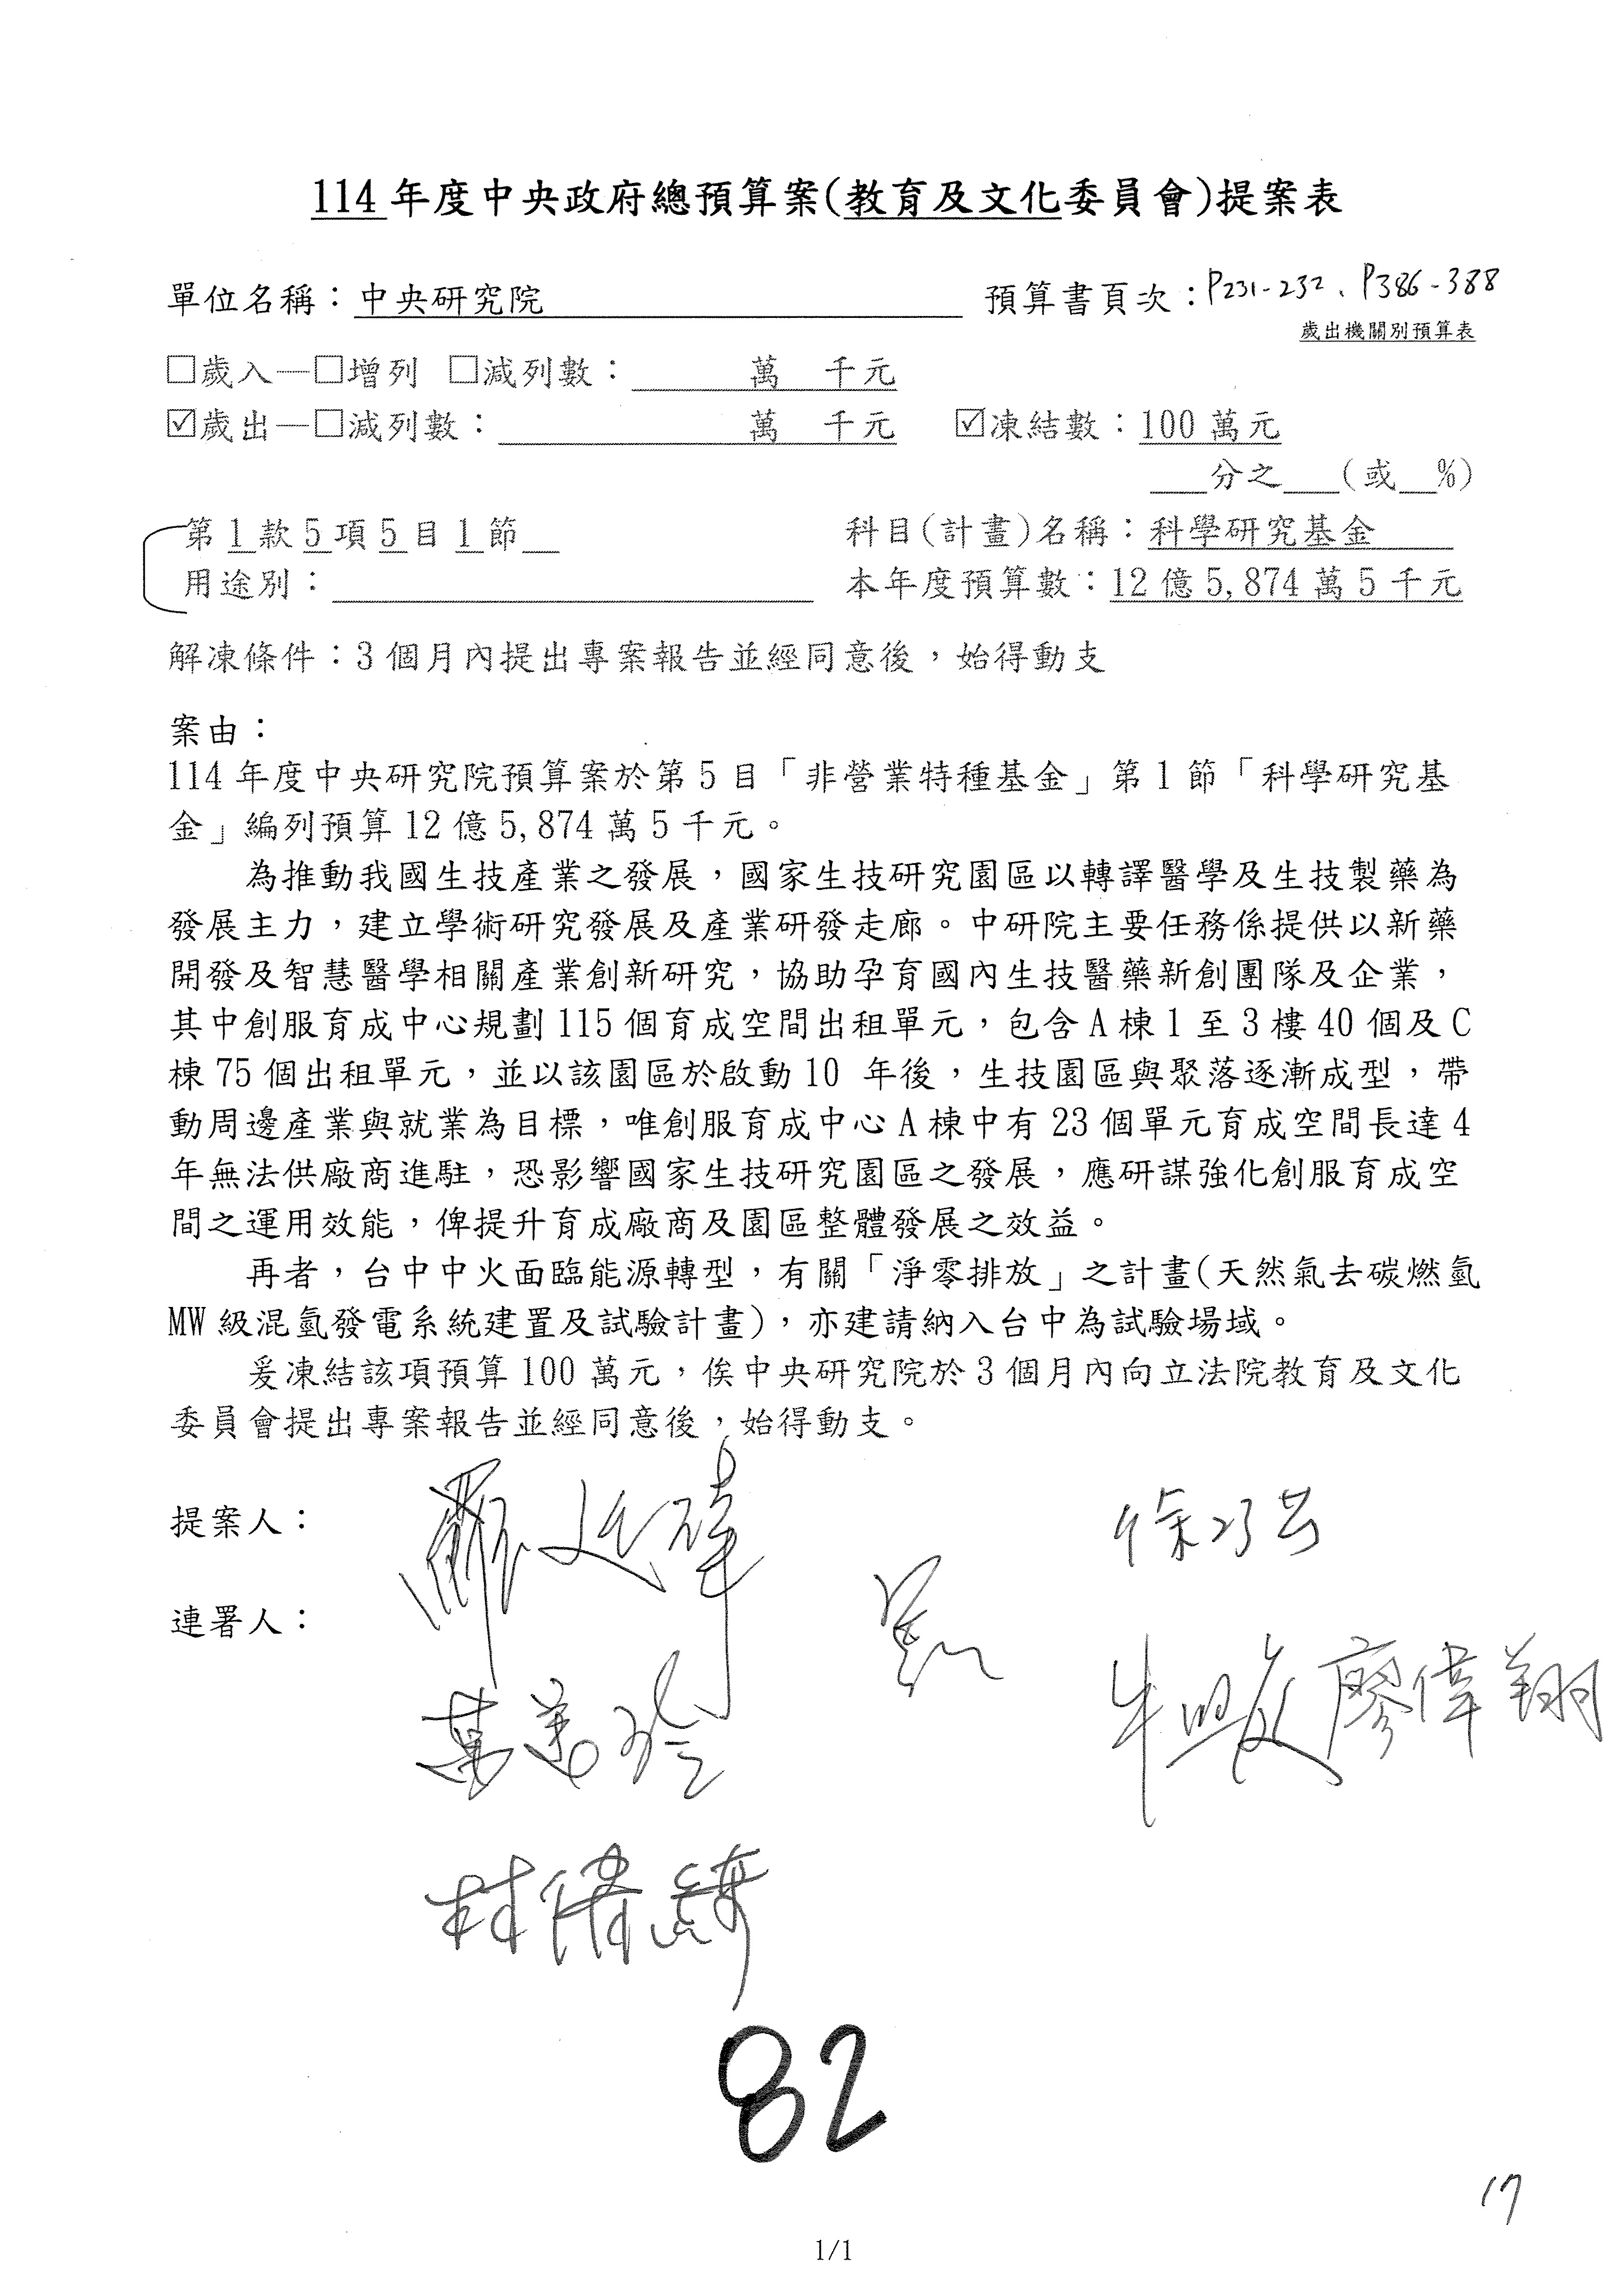 114 年度中央政府總預算案(教育及文化委員會)提案表
單位名稱：中央研究院 預算書頁次：P231-232、P386-388
歲出機關別預算表
□歲入—□增列 □減列數： 萬 千元
☑歲出—□減列數： 萬 千元 ☑凍結數：100 萬元
___分之___(或__%)
第 1 款 5 項 5 目 1 節__ 科目(計畫)名稱：科學研究基金
用途別： 本年度預算數：12 億 5,874 萬 5 千元
解凍條件：3 個月內提出專案報告並經同意後，始得動支
案由：
114 年度中央研究院預算案於第 5 目「非營業特種基金」第 1 節「科學研究基
金」編列預算 12 億 5,874 萬 5 千元。
為推動我國生技產業之發展，國家生技研究園區以轉譯醫學及生技製藥為
發展主力，建立學術研究發展及產業研發走廊。中研院主要任務係提供以新藥
開發及智慧醫學相關產業創新研究，協助孕育國內生技醫藥新創團隊及企業，
其中創服育成中心規劃 115 個育成空間出租單元，包含 A 棟 1 至 3 樓 40 個及 C
棟 75 個出租單元，並以該園區於啟動 10 年後，生技園區與聚落逐漸成型，帶
動周邊產業與就業為目標，唯創服育成中心 A 棟中有 23 個單元育成空間長達 4
年無法供廠商進駐，恐影響國家生技研究園區之發展，應研謀強化創服育成空
間之運用效能，俾提升育成廠商及園區整體發展之效益。
再者，台中中火面臨能源轉型，有關「淨零排放」之計畫(天然氣去碳燃氫
MW 級混氫發電系統建置及試驗計畫)，亦建請納入台中為試驗場域。
爰凍結該項預算 100 萬元，俟中央研究院於 3 個月內向立法院教育及文化
委員會提出專案報告並經同意後，始得動支。
提案人： 羅廷瑋 徐巧芯
連署人：
萬美玲 牛煦庭 廖偉翔
林倩綺
82
17
1/1